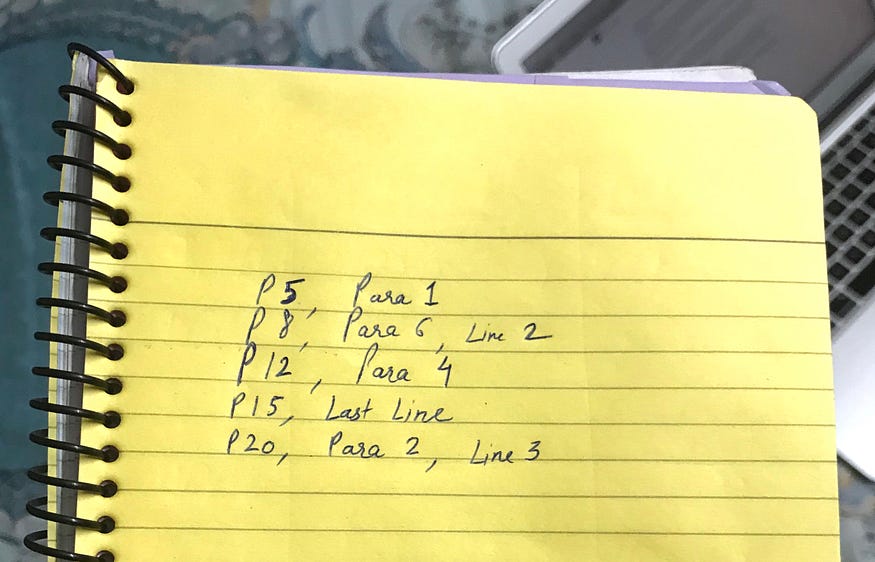 P5, Para 1
P8, Para 6, Line 2
P12, Para 4
P15, Last Line
P20, Para 2, Line 3